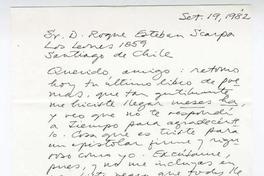 Set. 19, 1982
Sr. D. Roque Esteban Scarpa
Los Leones 1859
Santiago de Chile
Querido amigo: retomo
hoy tu último libro de poe
mas, que tan gentilmente
me hiciste llegar meses ha,
y veo que no te respondí
a tiempo para agradecért
lo. Cosa que es triste para
un epistolar firme y rigu
roso como yo. Excúsame,
pues, y no me incluyas en